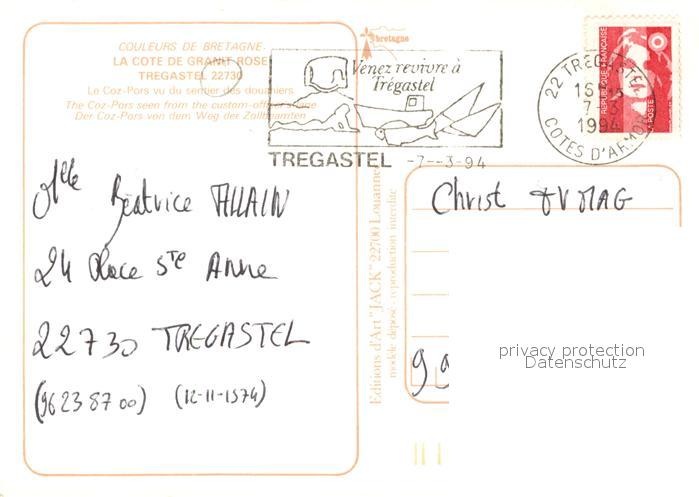 COULEURS DE BRETAGNE
LA COTE DE GRANIT ROSE
TREGASTEL 22730
Le Coz-Pors vu du sentier des douaniers
The Coz-Pors seen from the custom-officer's lane
Der Coz-Pors von dem Weg der Zollbeamten
bretagne
Venez revivre à
Trégastel
TREGASTEL -7--3-94
22 TREGASTEL
1994
COTES D'ARMOR
REPUBLIQUE FRANÇAISE
LA POSTE
Mlle Béatrice ALLAIN
24 Place Ste Anne
22730 TREGASTEL
(96 23 87 00) (12-11-1974)
Editions d'Art "JACK" 22700 Louannec
modèle déposé - reproduction interdite
Christ
99
privacy protection
Datenschutz